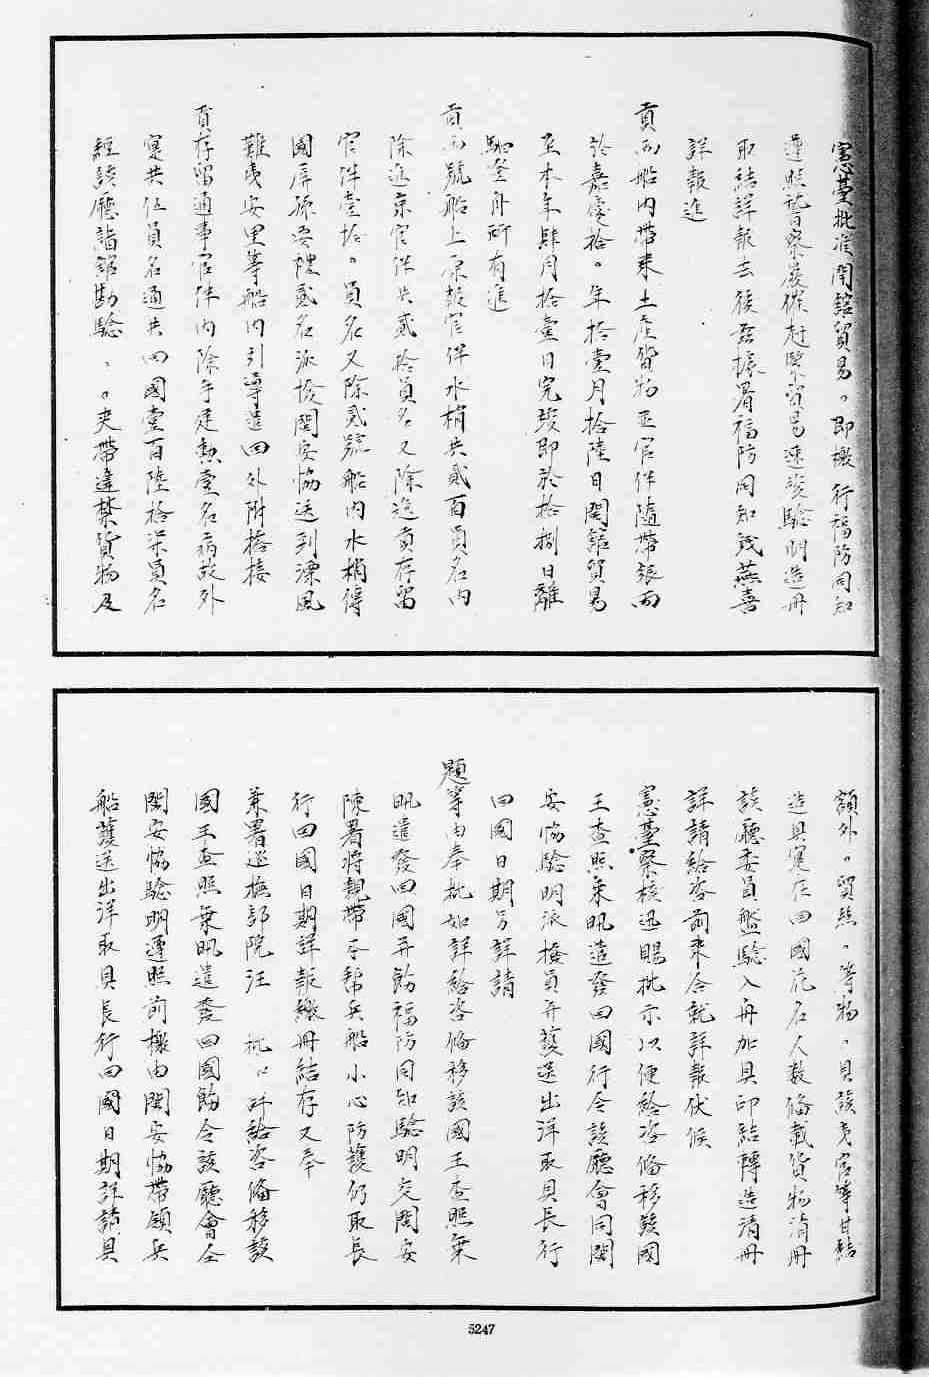 憲臺批准開館貿易。即檄 行福防同知
遵照督察嚴催赶緊貿易速竣驗明造冊
取結詳報去後茲據署福防同知錢燕喜
詳報進
貢兩船內帶來土產貨物並官伴隨帶銀兩
於嘉慶拾。年拾壹月拾陸日開館貿易
至本年肆月拾壹日完竣即於拾捌日離
驛登舟所有進
貢兩號船上原報官伴水梢共貳百員名內
除進京官伴共貳拾員名又除進貢存留
官伴壹拾。員名又除貳號船內水梢得
國屏 貳名派撥閩安協送到漂風
難夷安里等船內引導遣回外附搭接
貢存留通事官伴內除 廷勲壹名病故外
寔共伍員名通共回國壹百陸拾柒員名
經該廳詣館勘驗、。夾帶違禁貨物及
額外。貿絲。等物。具該夷官等甘結
造具寔在回國花名人數俻載貨物清冊
該廳委員盤驗入舟加具印結轉造清冊
詳請給咨前來合就詳報伏候
憲臺察核迅賜批示以便給咨俻移該國
王查照乗汛遣發回國行令該廳會同閩
安協驗明派撥員弁護送出洋取具長行
回國日期另詳請
題等由奉批如詳給咨俻移該國王查照乗
汛遣發回國并飭福防同知驗明交閩安
陳署將親帶 幇兵船小心防護仍取長
行回國日期詳報繳冊結存又奉
兼署巡撫部院汪 批 給咨俻移該
國王查照乗汛遣發回國飭令該廳會仝
閩安協驗明遵照前檄由閩安協帶領兵
船護送出洋取具長行回國日期詳請具
5247